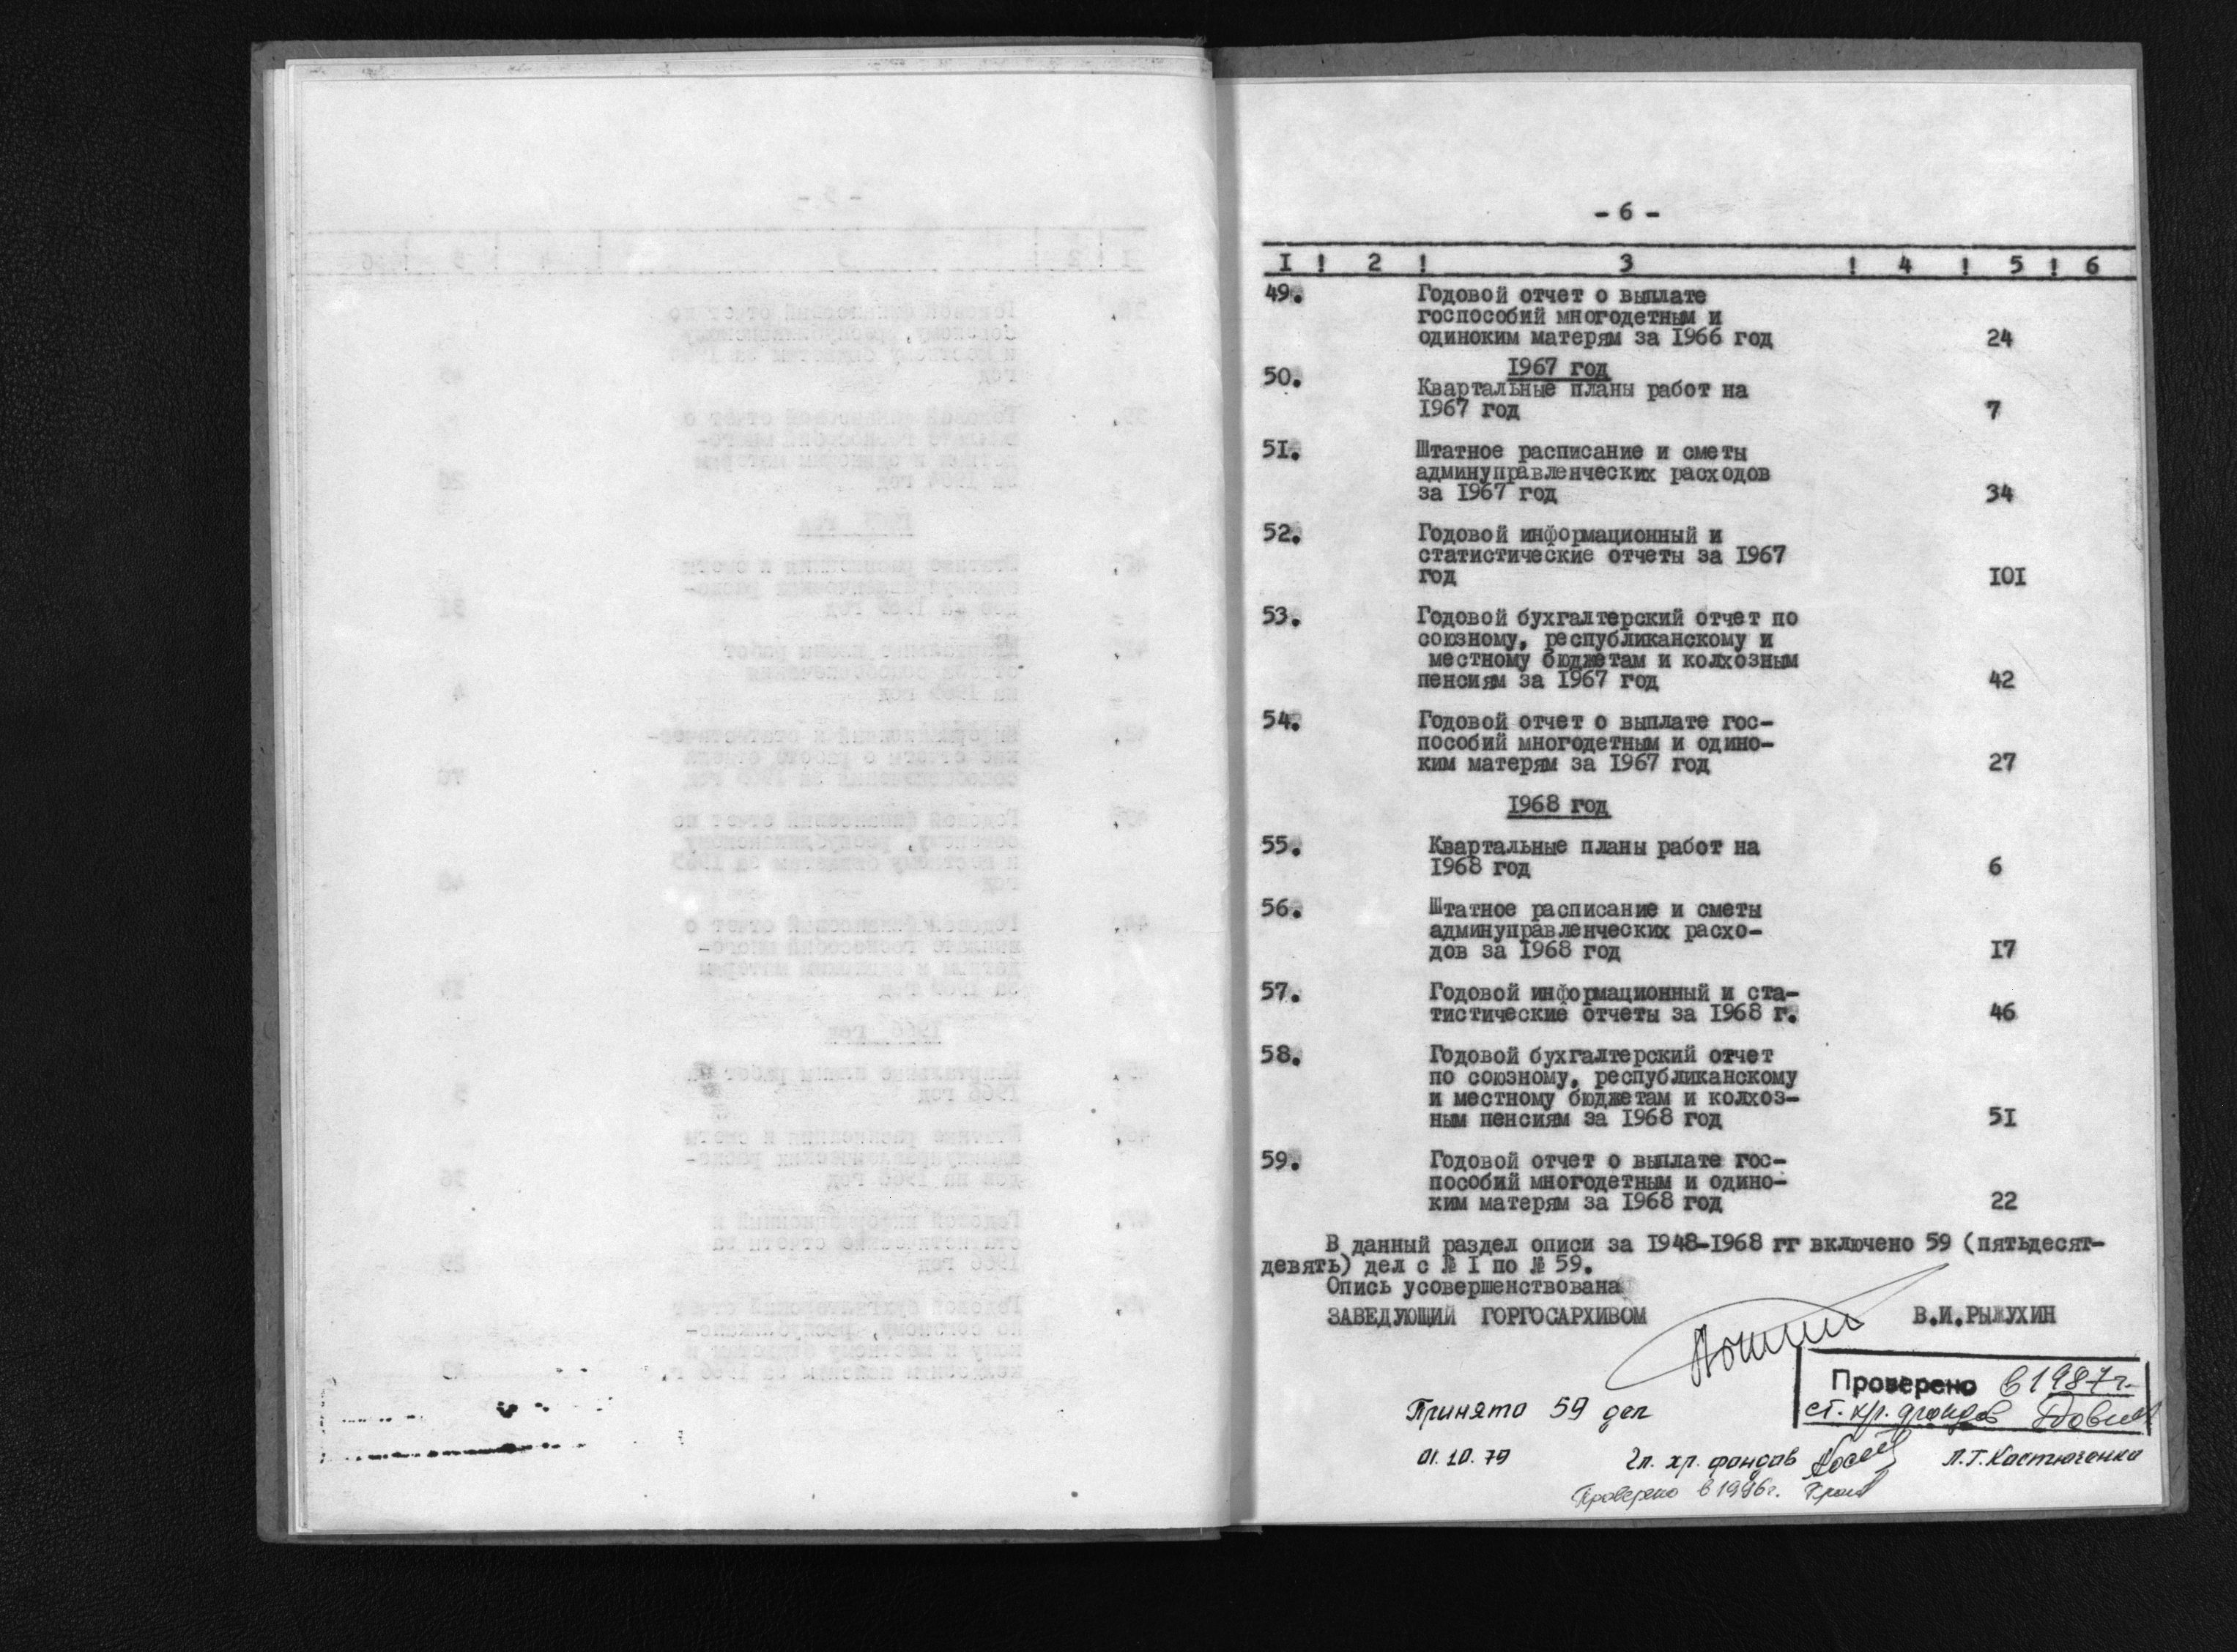 - 6 -
I ! 2 ! 3 ! 4 ! 5 ! 6
49. Годовой отчет о выплате
госпособий многодетным и
одиноким матерям за I966 год 24
I967 год
50. Квартальные планы работ на
I967 год 7
5I. Штатное расписание и сметы
админуправленческих расходов
за I967 год 34
52. Годовой информационный и
статистические отчеты за I967
год I0I
53. Годовой бухгалтерский отчет по
союзному, республиканскому и
местному бюджетам и колхозным
пенсиям за I967 год 42
54. Годовой отчет о выплате гос-
пособий многодетным и одино-
ким матерям за I967 год 27
I968 год
55. Квартальные планы работ на
I968 год 6
56. Штатное расписание и сметы
админуправленческих расхо-
дов за I968 год I7
57. Годовой информационный и ста-
тистические отчеты за I968 г. 46
58. Годовой бухгалтерский отчет
по союзному, республиканскому
и местному бюджетам и колхоз-
ным пенсиям за I968 год 5I
59. Годовой отчет о выплате гос-
пособий многодетным и одино-
ким матерям за I968 год 22
В данный раздел описи за I948-I968 гг включено 59 (пятьдесят-
девять) дел с № I по № 59.
Опись усовершенствована
ЗАВЕДУЮЩИЙ ГОРГОСАРХИВОМ В.И.РЫЖУХИН
Проверено в 1987г.
ст. хр. фондов
Принято 59 дел
01.10.79 Гл. хр. фондов Л.Г.Костюченко
Проверено в 1996г.